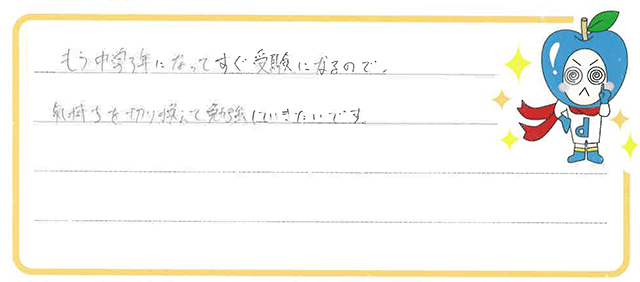 もう中学3年になってすぐ受験になるので、
気持ちを切り換えて勉強していきたいです。
d